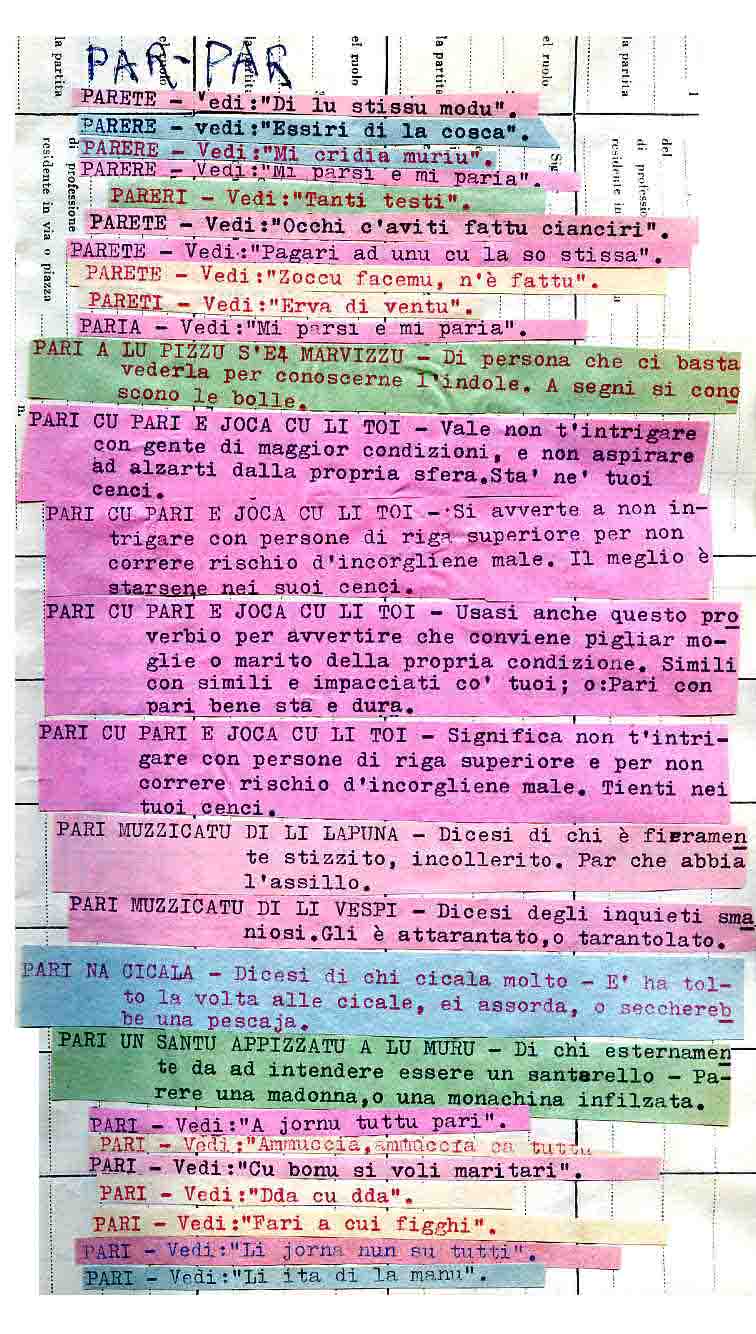 la partita
el ruolo
la partita
el ruolo
la partita
el ruolo
la partita
PAR-PAR
PARETE - Vedi:"Di lu stissu modu".
PARERE - vedi:"Essiri di la cosca".
PARERE - Vedi:"Mi cridia muriu".
PARERE - Vedi:"Mi parsi e mi paria".
PARERI - Vedi:"Tanti testi".
PARETE - Vedi:"Occhi c'aviti fattu cianciri".
PARETE - Vedi:"Pagari ad unu cu la so stissa".
PARETE - Vedi:"Zoccu facemu, n'è fattu".
PARETI - Vedi:"Erva di ventu".
PARIA - Vedi:"Mi parsi e mi paria".
di professione
residente in via o piazza
del
di professio
residente in
PARI A LU PIZZU S'E4 MARVIZZU - Di persona che ci basta
vederla per conoscerne l'indole. A segni si cono
scono le bolle.
PARI CU PARI E JOCA CU LI TOI - Vale non t'intrigare
con gente di maggior condizioni, e non aspirare
ad alzarti dalla propria sfera.Sta' ne' tuoi
cenci.
PARI CU PARI E JOCA CU LI TOI - Si avverte a non in-
trigare con persone di riga superiore per non
correre rischio d'incorgliene male. Il meglio è
starsene nei suoi cenci.
PARI CU PARI E JOCA CU LI TOI - Usasi anche questo pro
verbio per avvertire che conviene pigliar mo-
glie o marito della propria condizione. Simili
con simili e impacciati co' tuoi; o:Pari con
pari bene sta e dura.
PARI CU PARI E JOCA CU LI TOI - Significa non t'intri-
gare con persone di riga superiore e per non
correre rischio d'incorgliene male. Tienti nei
tuoi cenci.
PARI MUZZICATU DI LI LAPUNA - Dicesi di chi è fieramen
te stizzito, incollerito. Par che abbia
l'assillo.
PARI MUZZICATU DI LI VESPI - Dicesi degli inquieti sma
niosi.Gli è attarantato,o tarantolato.
PARI NA CICALA - Dicesi di chi cicala molto - E' ha tol-
to la volta alle cicale, ei assorda, o secchereb
be una pescaja.
PARI UN SANTU APPIZZATU A LU MURU - Di chi esternamen
te da ad intendere essere un santarello - Pa-
rere una madonna,o una monachina infilzata.
PARI - Vedi:"A jornu tuttu pari".
PARI - Vedi:"Ammuccia,ammuccia ca tuttu
PARI - Vedi:"Cu bonu si voli maritari".
PARI - Vedi:"Dda cu dda".
PARI - Vedi:"Fari a cui figghi".
PARI - Vedi:"Li jorna nun su tutti".
PARI - Vedi:"Li ita di la manu".